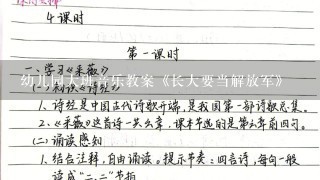 4课时
第一课时
一、学习《采薇》
幼儿园大班音乐教案《长大要当解放军》
1、诗经是中国古代诗歌开端,是我国第一部诗歌总集。
2、《采薇》这首诗一共六章,课本节选的是第六章前四句。
(二)诵读感知
1、结合注释,自由诵读。提示节奏:四言诗,每句一般
读成“二、二”节拍